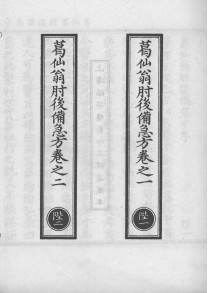 葛仙翁肘後備急方卷之一
陛一
葛仙翁肘後備急方卷之二
陛二